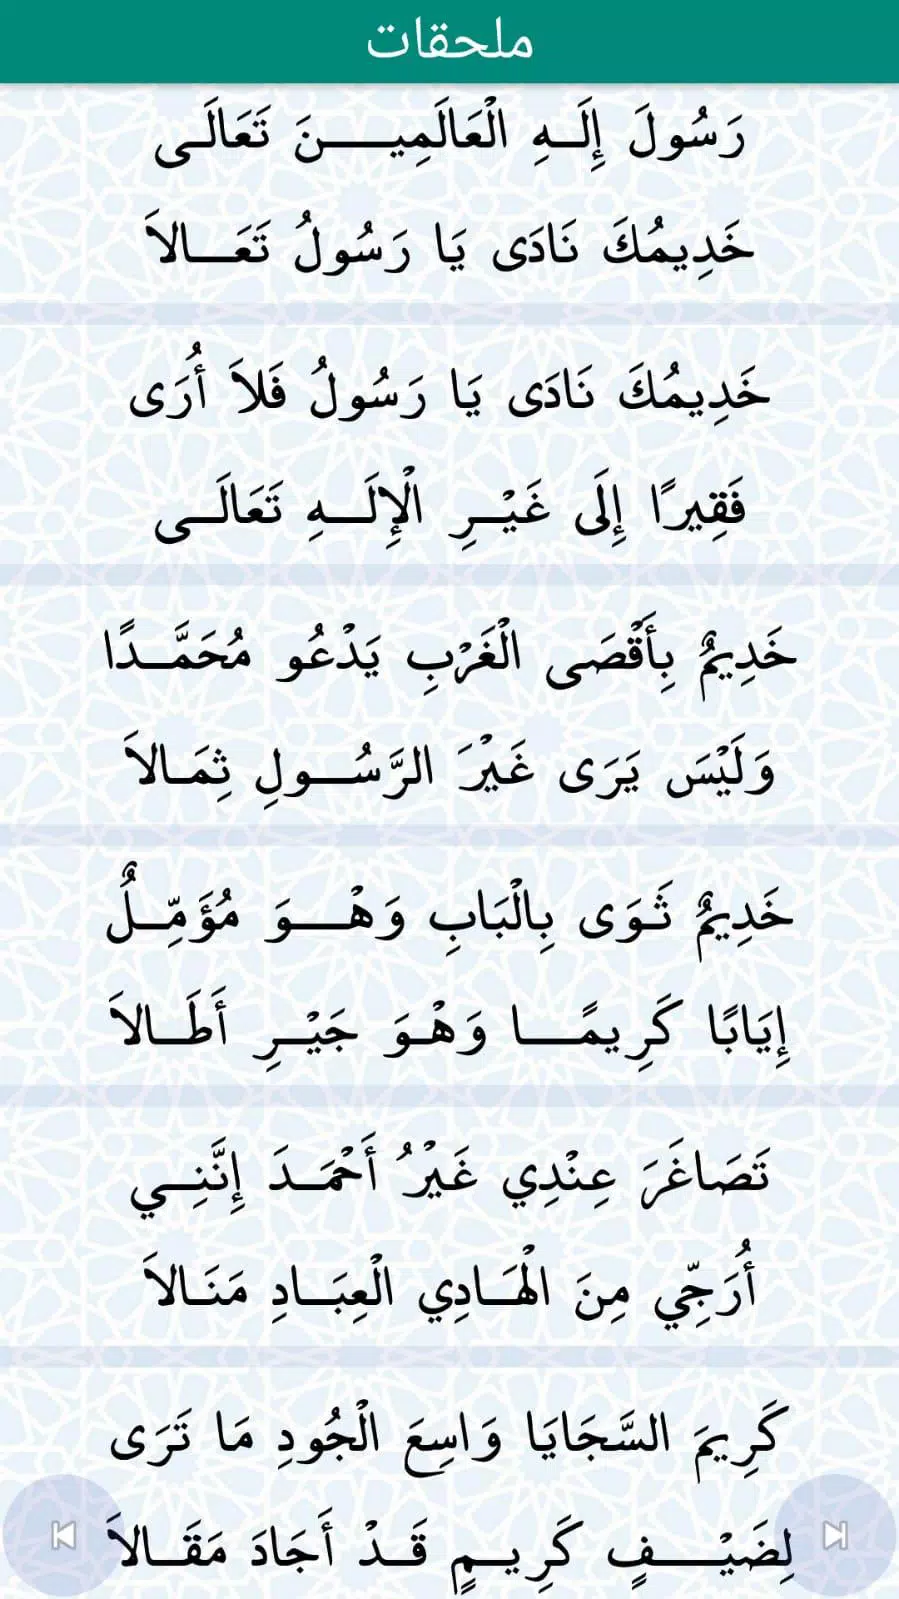 ملحقات
رَسُولَ إِلَــهِ الْعَالَمِيـــــنَ تَعَالَــى
خَدِيمُكَ نَادَى يَا رَسُولُ تَعَـــالاَ
خَدِيمُكَ نَادَى يَا رَسُولُ فَلاَ أُرَى
فَقِيرًا إِلَى غَيْــرِ الْإِلَـــهِ تَعَالَــى
خَدِيمٌ بِأَقْصَى الْغَرْبِ يَدْعُو مُحَمَّــدًا
وَلَيْسَ يَرَى غَيْرَ الرَّسُـــولِ ثِمَـالاَ
خَدِيمٌ ثَـوَى بِالْبَابِ وَهْـــوَ مُؤَمِّــلٌ
إِيَابًا كَرِيمًـــا وَهْـوَ جَيْــرِ أَطَــالاَ
تَصَاغَرَ عِنْدِي غَيْرُ أَحْمَــدَ إِنَّنِــي
أُرَجِّي مِنَ الْهَــادِي الْعِبَــادِ مَنَـالاَ
كَرِيمَ السَّجَايَا وَاسِعَ الْجُودِ مَا تَرَى
لِضَيْــــفٍ كَرِيــمٍ قَــدْ أَجَادَ مَقَــالاَ